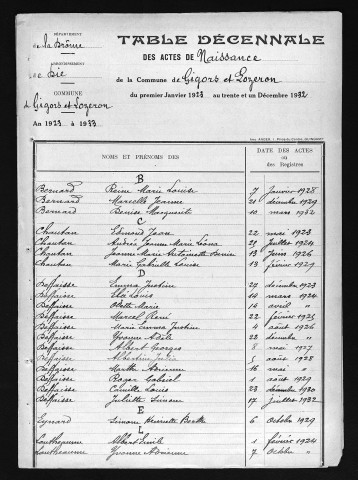 DÉPARTEMENT
de la Drôme
ARRONDISSEMENT
de Die
COMMUNE
de Gigors et Lozeron
An 1923 à 1933
TABLE DÉCENNALE
DES ACTES DE Naissance
de la Commune de Gigors et Lozeron
du premier Janvier 1923 au trente et un Décembre 1932
NOMS ET PRÉNOMS DES
DATE DES ACTES
ou
des Registres
B
Bernard Reine Marie Louise 7 janvier 1928
Bernard Marcelle Jeanne 21 décembre 1929
Bernard Denise Marguerite 10 mars 1932
C
Chautan Edmond Jean 22 mai 1923
Chautan Andrée Jeanne Marie Léona 21 juillet 1924
Chautan Jeanne Marie Antoinette 13 juin 1926
Chautan Marie Gabrielle Louise 13 février 1929
D
Deffaisse Emma Justine 27 décembre 1923
Deffaisse Elie Louis 14 mars 1924
Deffaisse Odette Marie 14 avril "
Deffaisse Marcel René 22 février 1925
Deffaisse Marie Emma Justine 4 août 1926
Deffaisse Yvonne Adèle 22 décembre "
Deffaisse Albert Georges 8 mai 1927
Deffaisse Albertine Julia 5 août 1928
Deffaisse Marthe Adrienne 16 mai "
Deffaisse Roger Gabriel 1 août 1929
Deffaisse Camille Louis 23 décembre 1930
Deffaisse Juliette Simone 17 juillet 1932
E
Eynard Simone Henriette Berthe 6 octobre 1929
L
Lantheaume Albert Emile 1 février 1924
Lantheaume Yvonne Adrienne 7 octobre "